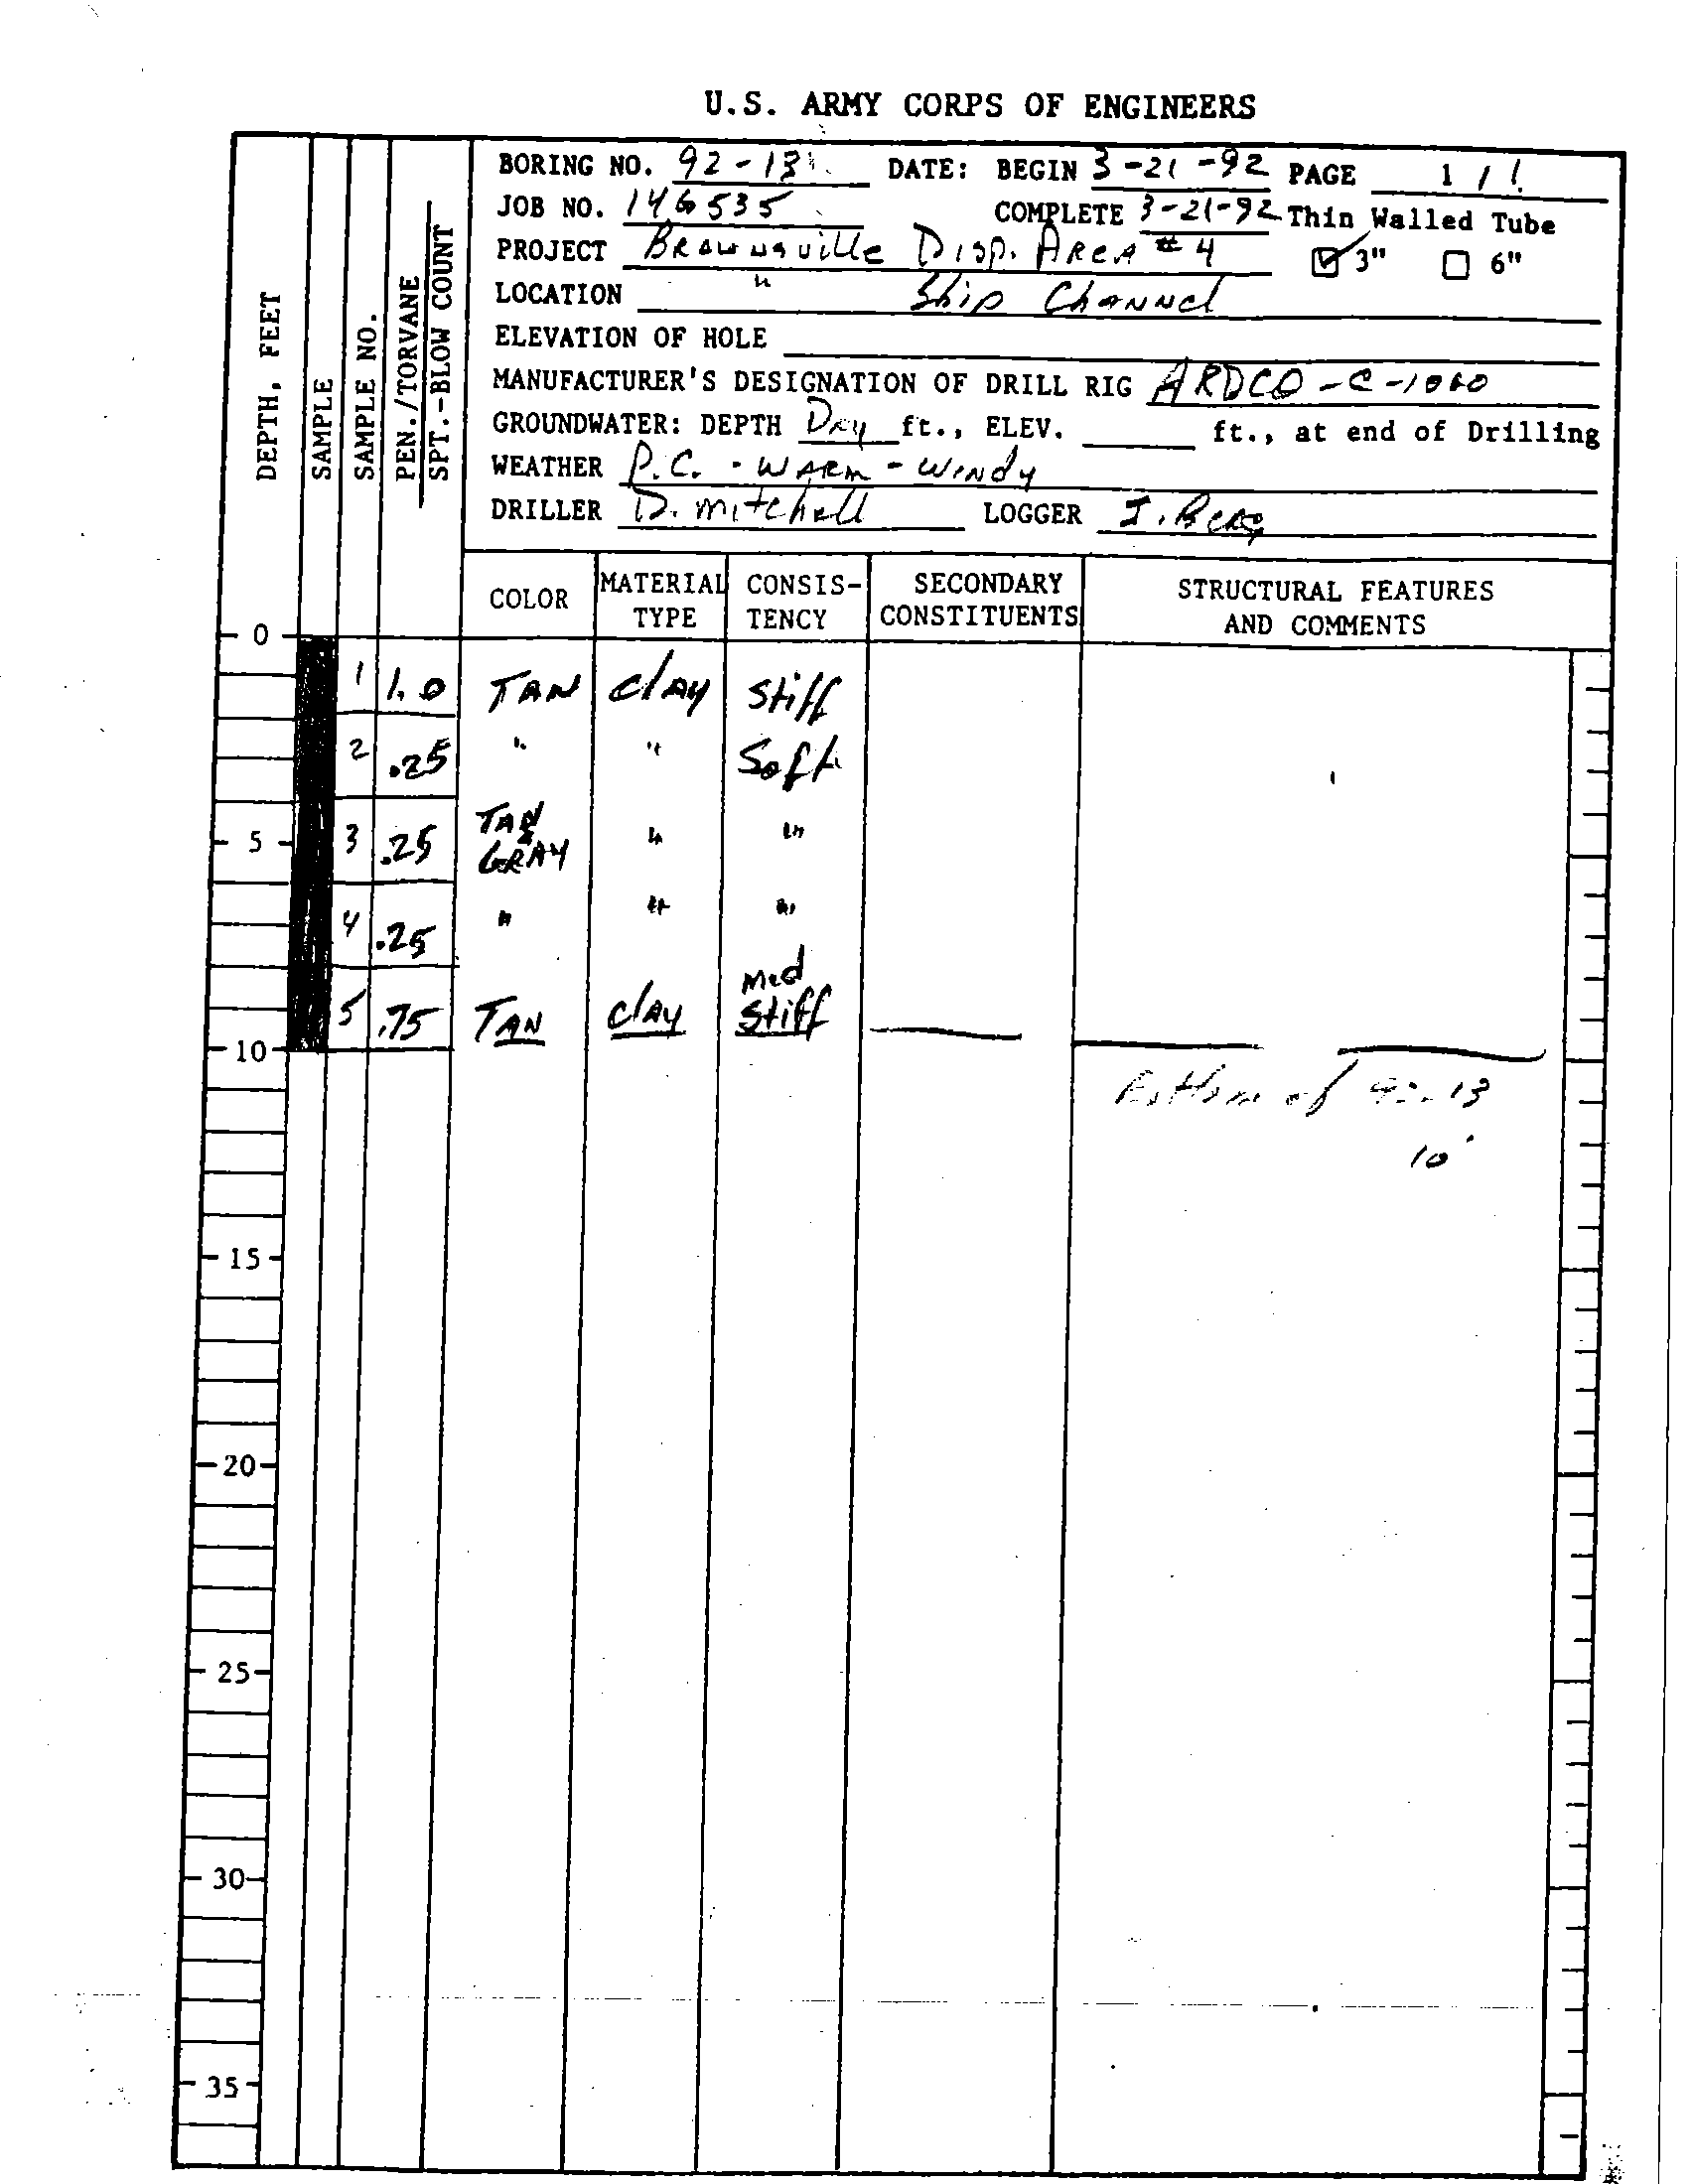 U.S. ARMY CORPS OF ENGINEERS
DEPTH, FEET
SAMPLE
SAMPLE NO.
PEN./TORVANE
SPT.-BLOW COUNT
BORING NO. 92-13 DATE: BEGIN 3-21-92 PAGE 1 / 1
JOB NO. 146535 COMPLETE 3-21-92 Thin Walled Tube
PROJECT Brownsville Disp. Area #4 3" 6"
LOCATION " Ship Channel
ELEVATION OF HOLE
MANUFACTURER'S DESIGNATION OF DRILL RIG ARDCO-C-1000
GROUNDWATER: DEPTH Dry ft., ELEV. ft., at end of Drilling
WEATHER P.C. - WARM - WINDY
DRILLER D. Mitchell LOGGER J.
COLOR MATERIAL TYPE CONSIS-TENCY SECONDARY CONSTITUENTS STRUCTURAL FEATURES AND COMMENTS
0
1 1.0 TAN clAy Stiff
2 .25 " " Soft
5 3 .25 TAN & GRAY " "
4 .25 " " "
5 .75 TAN clAy Med Stiff
10
Bottom of 92-13
10'
15
20
25
30
35